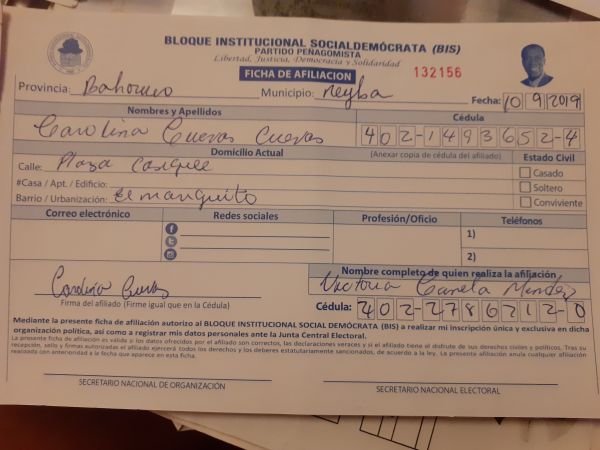 BLOQUE INSTITUCIONAL SOCIALDEMÓCRATA (BIS)
PARTIDO PEÑAGOMISTA
Libertad, Justicia, Democracia y Solidaridad
FICHA DE AFILIACION 132156
Provincia: Bahoruco Municipio: Neyba Fecha: 10 9 2019
Nombres y Apellidos Cédula
Carolina Cuevas Cuevas 402-1493652-4
Domicilio Actual (Anexar copia de cédula del afiliado) Estado Civil
Calle: Plaza Casique Casado
#Casa / Apt. / Edificio: Soltero
Barrio / Urbanización: El manguito Conviviente
Correo electrónico Redes sociales Profesión/Oficio Teléfonos
1)
2)
Nombre completo de quien realiza la afiliación
Carolina Cuevas Victoria Canela Mendez
Firma del afiliado (Firme igual que en la Cédula) Cédula: 402-2786212-0
Mediante la presente ficha de afiliación autorizo al BLOQUE INSTITUCIONAL SOCIAL DEMÓCRATA (BIS) a realizar mi inscripción única y exclusiva en dicha
organización política, así como a registrar mis datos personales ante la Junta Central Electoral.
La presente ficha de afiliación es valida si los datos ofrecidos por el afiliado son correctos, las declaraciones veraces y si el afiliado tiene el disfrute de sus derechos civiles y políticos. Tras su
recepción, sello y firmas autorizadas el afiliado ejercerá todos los derechos y los deberes estatutariamente sancionados, de acuerdo a la ley. La presente afiliación anula cualquier afiliación
realizada con anterioridad a la fecha que aparece en esta ficha.
SECRETARIO NACIONAL DE ORGANIZACIÓN SECRETARIO NACIONAL ELECTORAL